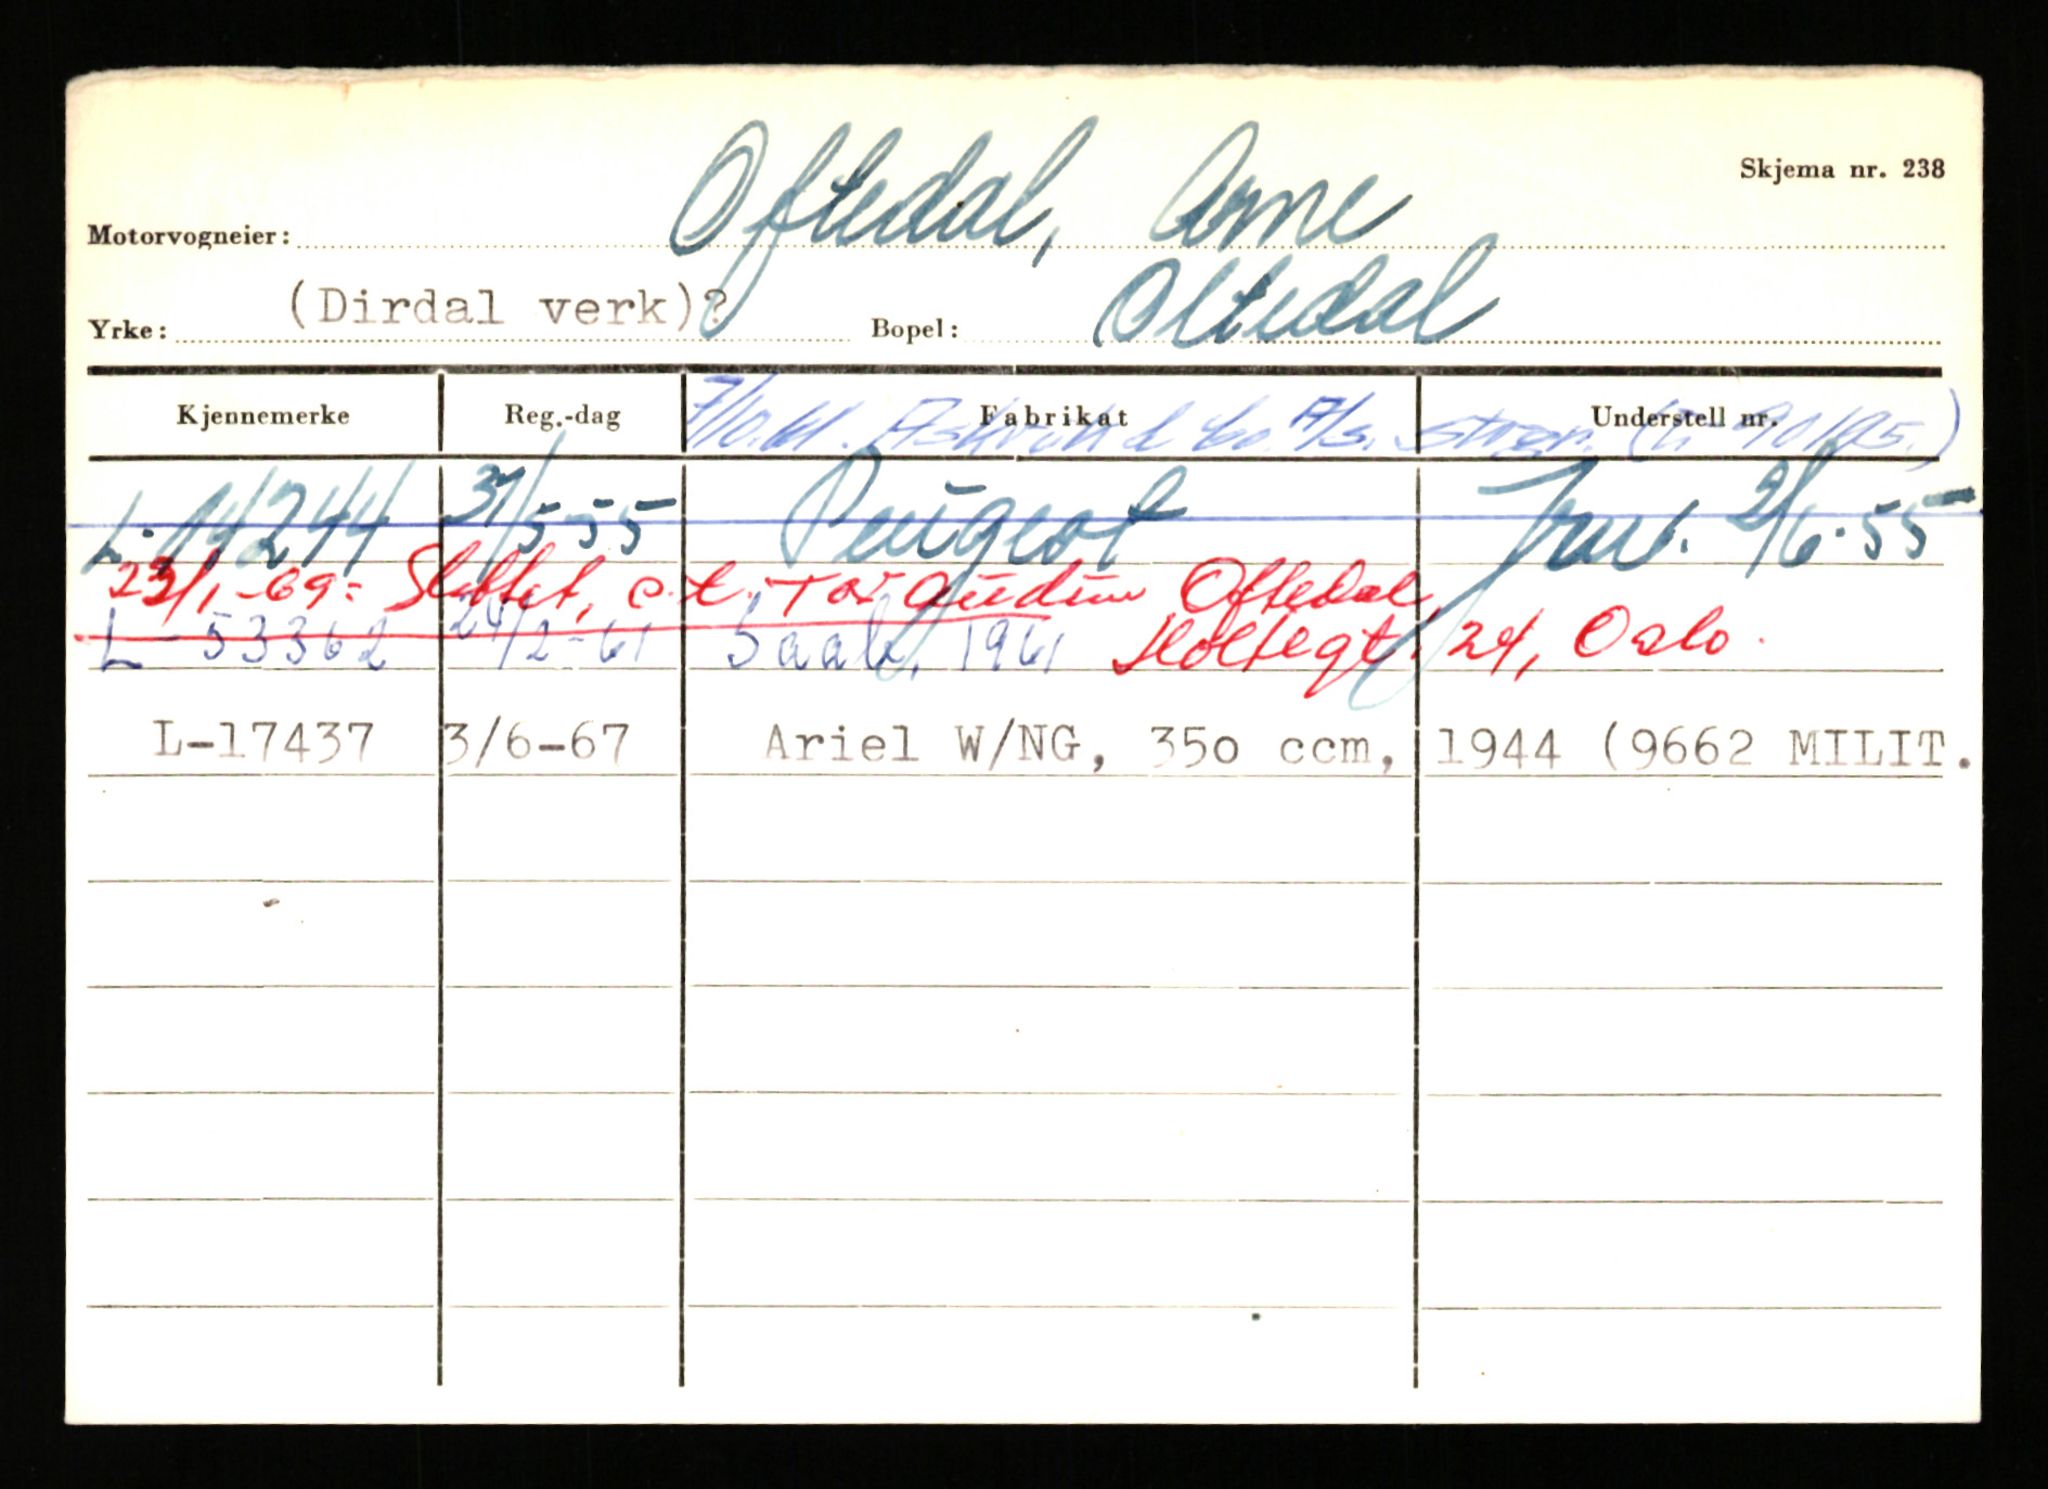 Skjema nr. 238
Motorvogneier: Oftedal, Arne
Yrke: (Dirdal verk)? Bopel: Oltedal
Kjennemerke Reg.-dag Fabrikat Understell nr.
7/10.61. A/s.
L-14244 31/5-55 Peugeot 2/6-55
23/1-69: Slettet, e.t. Tor Gudim Oftedal,
L-53362 24/2-61 Saab, 1961 Holtegt. 24, Oslo.
L-17437 3/6-67 Ariel W/NG, 350 ccm, 1944 (9662 MILIT.